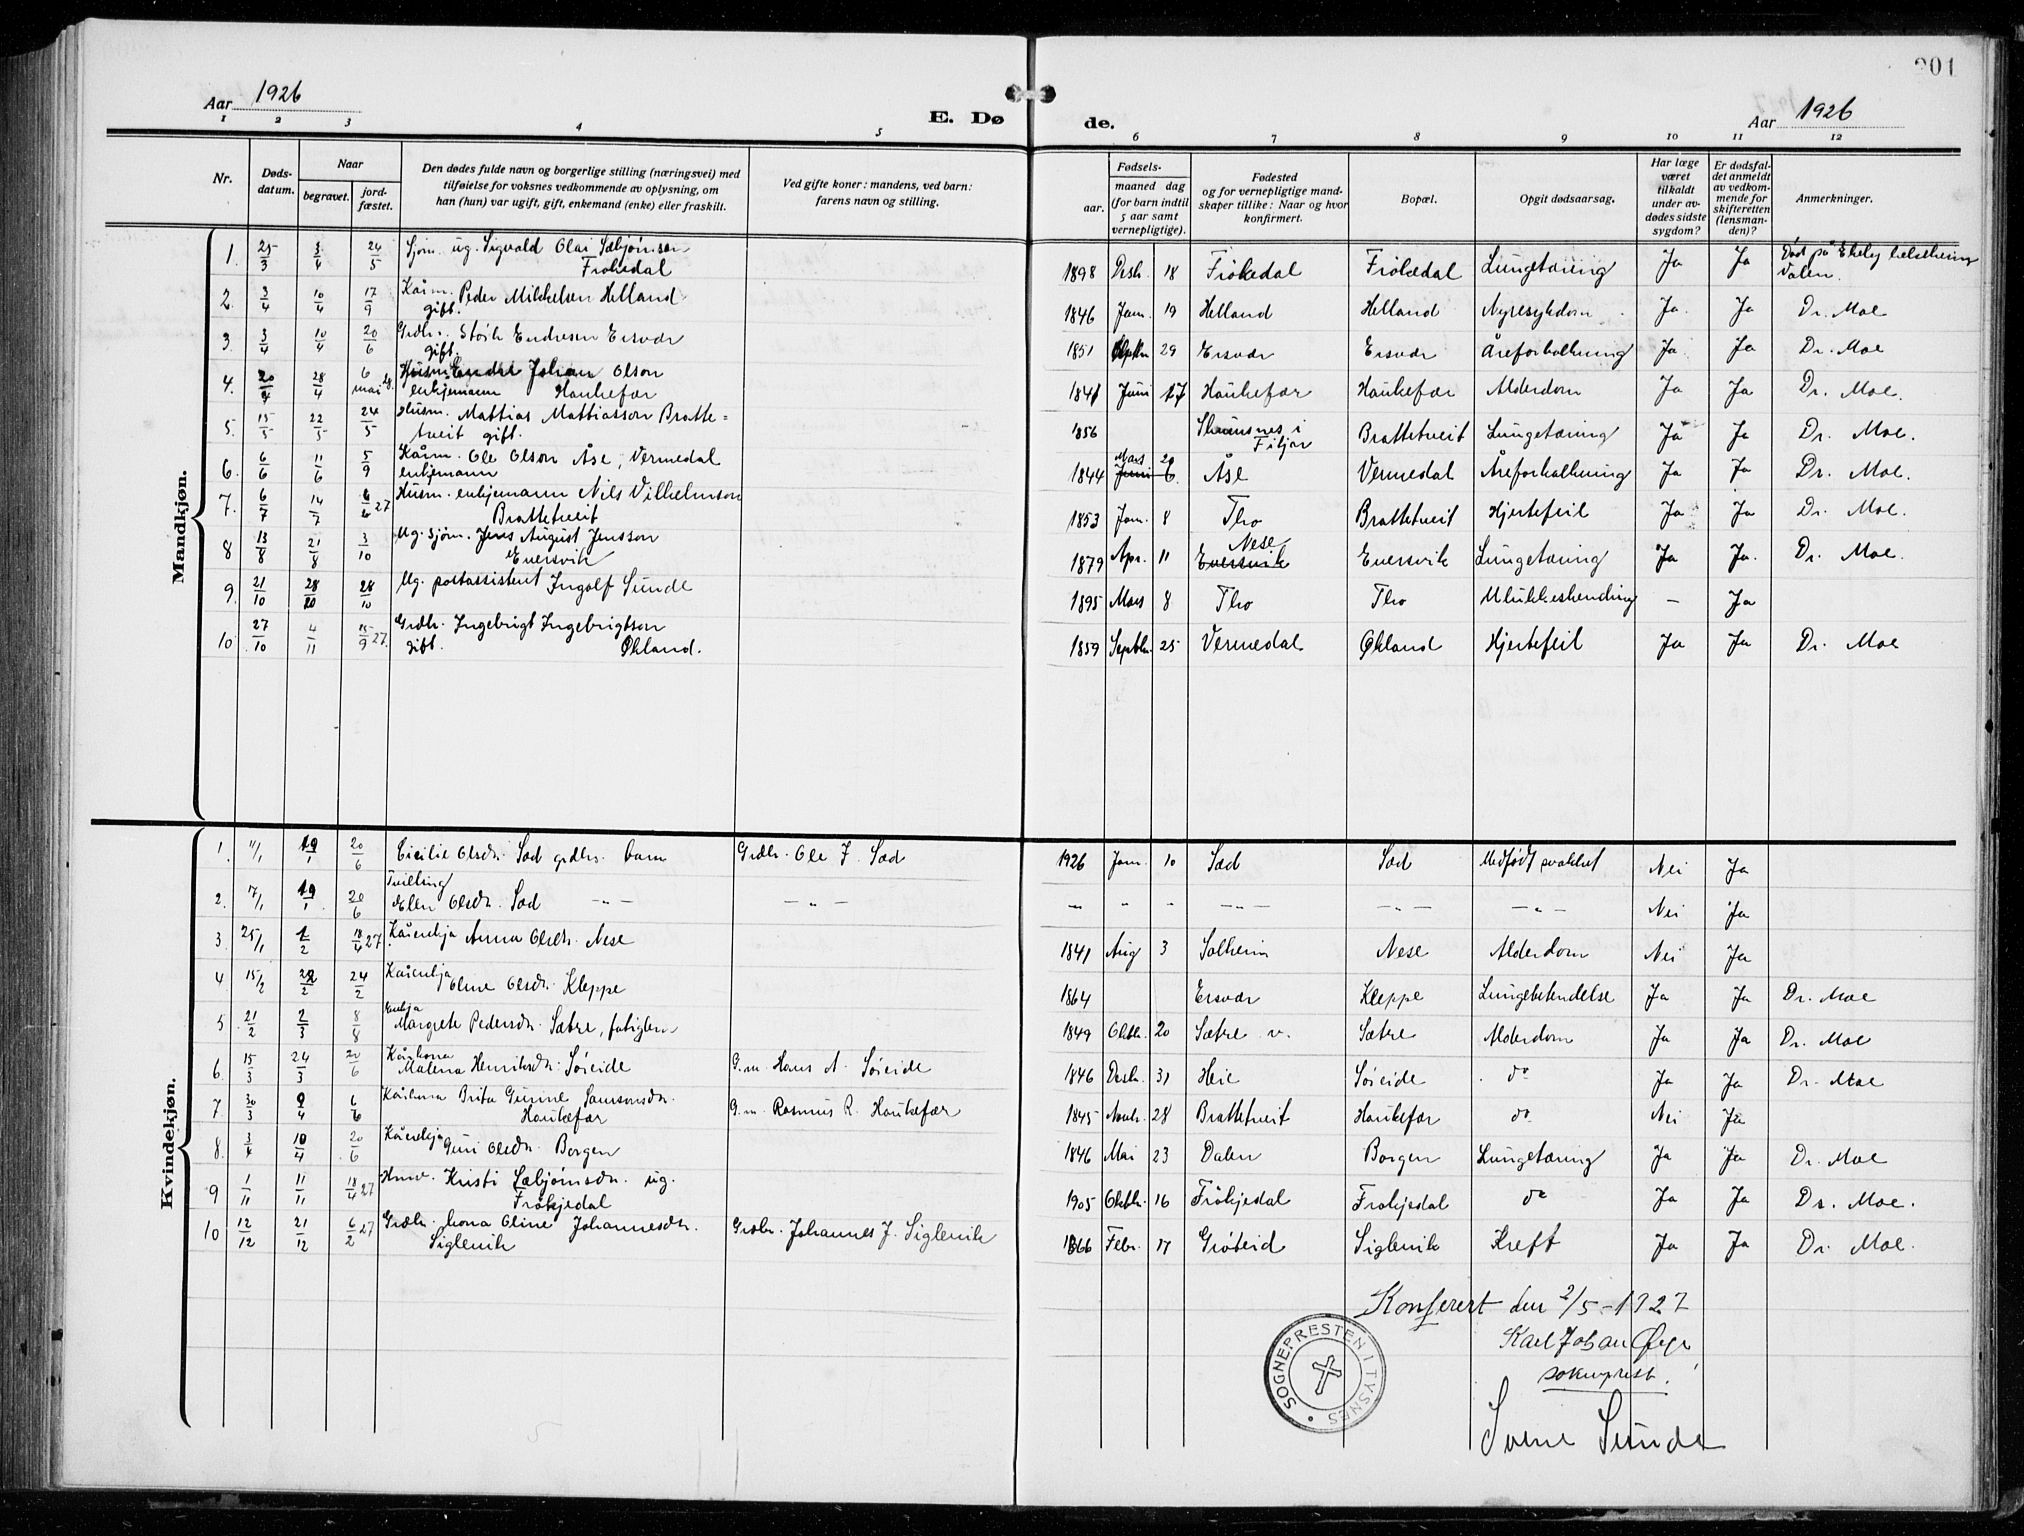 201
Aar 1926
E. Dø de.
Aar 1926
1 2 3 4 5 6 7 8 9 10 11 12
Nr.
Døds-
datum.
Naar
begravet.
jord-
fæstet.
Den dødes fulde navn og borgerlige stilling (næringsvei) med
tilføielse for voksnes vedkommende av oplysning, om
han (hun) var ugift, gift, enkemand (enke) eller fraskilt.
Ved gifte koner: mandens, ved barn:
farens navn og stilling.
Fødsels-
aar.
maaned dag
(for barn indtil
5 aar samt
vernepligtige).
Fødested
og for vernepligtige mand-
skaper tillike: Naar og hvor
konfirmert.
Bopæl.
Opgit dødsaarsag.
Har læge
været
tilkaldt
under av-
dødes sidste
sygdom?
Er dødsfal-
det anmeldt
av vedkom-
mende for
skifteretten
(lensman-
den)?
Anmerkninger.
Mandkjøn.
1. 25/3 3/4 24/5 Sjøm. ug. Sigvald Olai Sæbjørnsen
Frøkedal 1898 Desb. 18 Frøkedal Frøkedal Lungetæring Ja Ja Død på
Valen.
2. 3/4 10/4 17/9 Kårm. Peder Mikkelsen Helland
gift. 1846 Jan. 19 Helland Helland Nyresykdom Ja. Ja Dr. Moe
3. 3/4 10/4 20/6 Grdbr. Størk Endresen Ersvær
gift. 1851 29 Ersvær Ersvær Åreforkalkning Ja. Ja Dr. Moe
4. 20/4 28/4 6 mai Husm. Endre Johan Olson
enkjemann Haukefær 1841 Juni 17 Haukefær Haukefær Alderdom Ja Ja Dr. Moe.
5. 15/5 22/5 24/5 Husm. Mattias Mattiasson Bratte=
tveit gift. 1856 i
Fitjar Brattetveit Lungetæring Ja Ja Dr. Moe.
6. 6/6 11/6 5/9 Kårm. Ole Olson Åse, Vermedal
enkjemann 1844 Mars 20 Juni 6. Åse Vermedal Åreforkalkning Ja Ja Dr. Moe.
7. 6/7 14/7 6/6 27 Husm. enkjemann Nils Vilhelmson
Brattetveit 1853 Jan. 8 Tho Brattetveit Hjertefeil Ja Ja Dr. Moe.
8 13/8 21/8 3/10 Ug. sjøm. Jens August Jensson
Eversvik 1879 Apr. 11 Nese
Eversvik Eversvik Lungetæring Ja Ja. Dr. Moe.
9. 21/10 28/10 28/10 Ug. postassistent Ingolf Sunde 1895 Mars 8 Tho Tho Ulukkeshending – Ja
10 27/10 4/11 15/9 27. Grdbr. Ingebrigt Ingebrigtson
gift. Økland. 1859 Septbr. 25 Vermedal Økland Hjertefeil Ja Ja Dr. Moe
Kvindekjøn.
1. 11/1 19/1 20/6 Cicilie Olsdtr. Sæd grdbrs. barn Grdbr. Ole J. Sæd 1926 Jan. 10 Sæd Sæd Medfødt svakhet Nei Ja
Tvilling
2. 17/1 19/1 20/6 Elen Olsdtr. Sæd –"– –"– " " " –"– –"– –"– Nei Ja
3. 25/1 1/2 18/4 27 Kårenkja Anna Olsdtr. Nese 1841 Aug 3 Solheim Nese Alderdom Nei Ja
4 15/2 22/2 24/2 Kårenkja Oline Olsdtr. Kleppe 1864 Ersvær Kleppe Lungebetendelse Ja Ja Dr. Moe
5 21/2 2/3 8/8 Enkja
Margrete Pedersdtr. Sætre, fatiglem 1849 Oktb. 20 Sætre v. Sætre Alderdom Ja Ja Dr. Moe
6. 15/3 24/3 20/6 Kårkona
Malena Henriksdtr. Søreide G.m. Hans A. Søreide 1846 Desb. 31 Heie Søreide do Ja Ja Dr. Moe
7. 30/3 9/4 6/6 Kårkona Brita Gurine Samsonsdtr.
Haukefær G.m. Rasmus R. Haukefær 1845 Novb. 28 Brattetveit Haukefær do Nei Ja
8. 3/4 10/4 20/6 Kårenkja Guri Olsdtr. Borgen 1846 Mai 23 Dalen Borgen Lungetæring Ja Ja Dr. Moe
9 1/11 11/11 18/4 27 Kristi Sæbjørnsdtr. ug.
Frøkjedal 1905 Oktb. 16 Frøkjedal Frøkjedal do Ja Ja Dr. Moe.
10 12/12 21/12 6/2 27 Grdbr. kona Oline Johannesdtr.
Siglevik Grdbr. Johannes J. Siglevik 1866 Febr. 17 Grøteid Siglevik Kreft Ja Ja Dr. Moe.
Konferert den 2/5 - 1927
Karl Johan
sokneprest.
SOGNEPRESTEN I TYSNES
Sunde